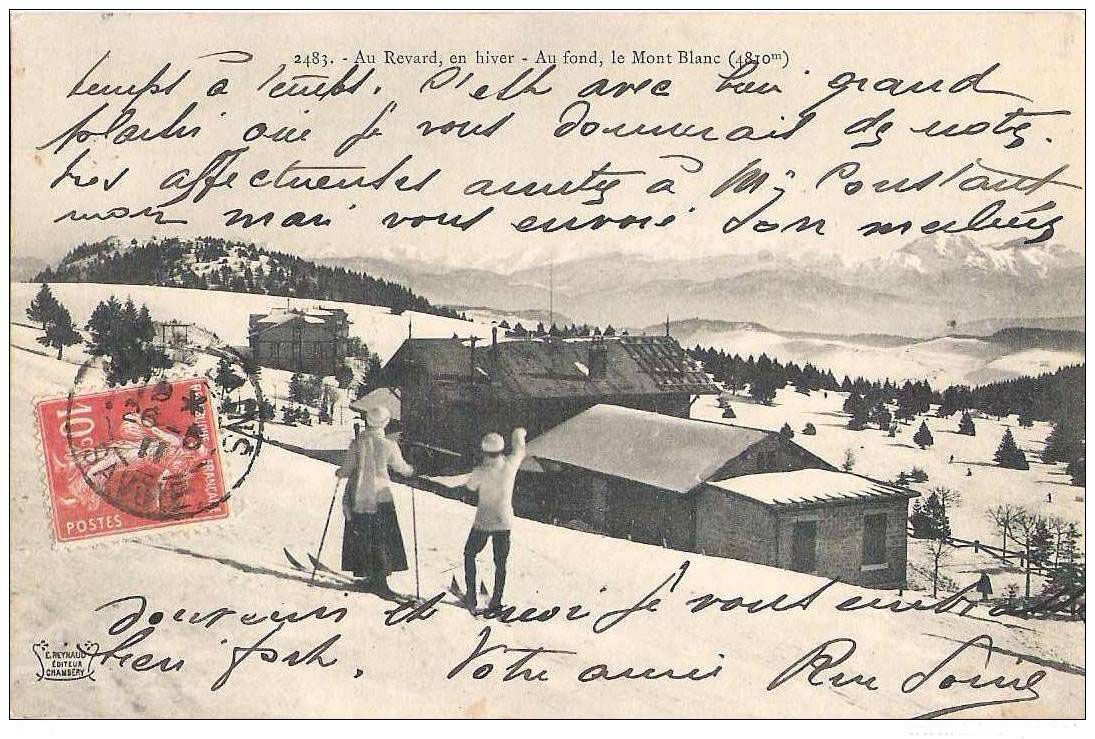 2483. - Au Revard, en hiver - Au fond, le Mont Blanc (4810m)
temps à temps. C'est avec bien grand
plaisir que je vous donnerais de notre
très affectueuses amitiés à Mr Constant
mon mari vous envoie son meilleur
10c
POSTES
FRANÇAISE
SAVOIE
souvenir et moi je vous embrasse
bien fort. Votre amie
E. REYNAUD
ÉDITEUR
CHAMBÉRY